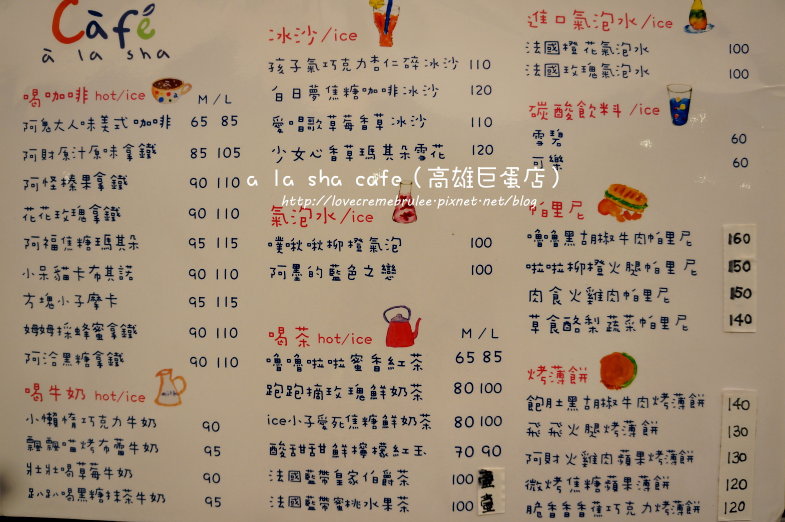 Café
à la sha
喝咖啡 hot/ice M/L
阿鬼大人味美式咖啡 65 85
阿財原汁原味拿鐵 85 105
阿怪榛果拿鐵 90 110
花花玫瑰拿鐵 90 110
阿福焦糖瑪其朵 95 115
小呆貓卡布其諾 90 110
方塊小子摩卡 95 115
姆姆採蜂蜜拿鐵 90 110
阿洽黑糖拿鐵 90 110
喝牛奶 hot/ice
小懶惰巧克力牛奶 90
飄飄喵烤布蕾牛奶 95
壯壯喝草莓牛奶 90
趴趴喝黑糖抹茶牛奶 95
冰沙/ice
孩子氣巧克力杏仁碎冰沙 110
白日夢焦糖咖啡冰沙 120
愛唱歌草莓香草冰沙 110
少女心香草瑪其朵雪花 120
氣泡水/ice
噗啾啾柳橙氣泡 100
阿墨的藍色之戀 100
喝茶 hot/ice M/L
嚕嚕啦啦蜜香紅茶 65 85
跑跑摘玫瑰鮮奶茶 80 100
ice小子愛死焦糖鮮奶茶 80 100
酸甜甜鮮檸檬紅玉 70 90
法國藍帶皇家伯爵茶 100 壹
法國藍帶蜜桃水果茶 100 壺
進口氣泡水/ice
法國橙花氣泡水 100
法國玫瑰氣泡水 100
碳酸飲料/ice
雪碧 60
可樂 60
帕里尼
嚕嚕黑胡椒牛肉帕里尼 160
啦啦柳橙火腿帕里尼 150
肉食火雞肉帕里尼 150
草食酪梨蔬菜帕里尼 140
烤薄餅
飽肚黑胡椒牛肉烤薄餅 140
飛飛火腿烤薄餅 130
阿財火雞肉蘋果烤薄餅 130
微烤焦糖蘋果薄餅 120
脆香香香蕉巧克力烤薄餅 120
a la sha cafe (高雄巨蛋店)
http://lovecremebrulee.pixnet.net/blog